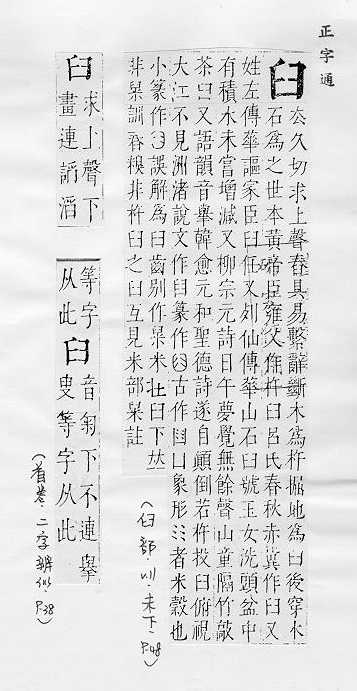 正字通
臼
久切求上聲舂具易繫辭斷木爲杵掘地爲臼後穿木
石爲之世本黃帝臣雍父作杵臼呂氏春秋赤冀作臼又
姓左傳華謳家臣臼任又列仙傳華山石臼號玉女洗頭盆中
有積水未嘗增減又柳宗元詩日午夢覺無餘聲山童隔竹敲
茶臼又語韻音舉韓愈元和聖德詩遂自顛倒若杵投臼俯視
大江不見洲渚說文作臼篆作古作口象形者米穀也
小篆作誤解爲臼齒別作米臼下
非訓舂糗非杵臼之臼互見米部註
(臼部.未下.P48)
臼
求上聲下
畫連謟滔
等字
从此
𦥑
音匊下不連舉
叟等字从此
(首卷.二字辨似.P38)